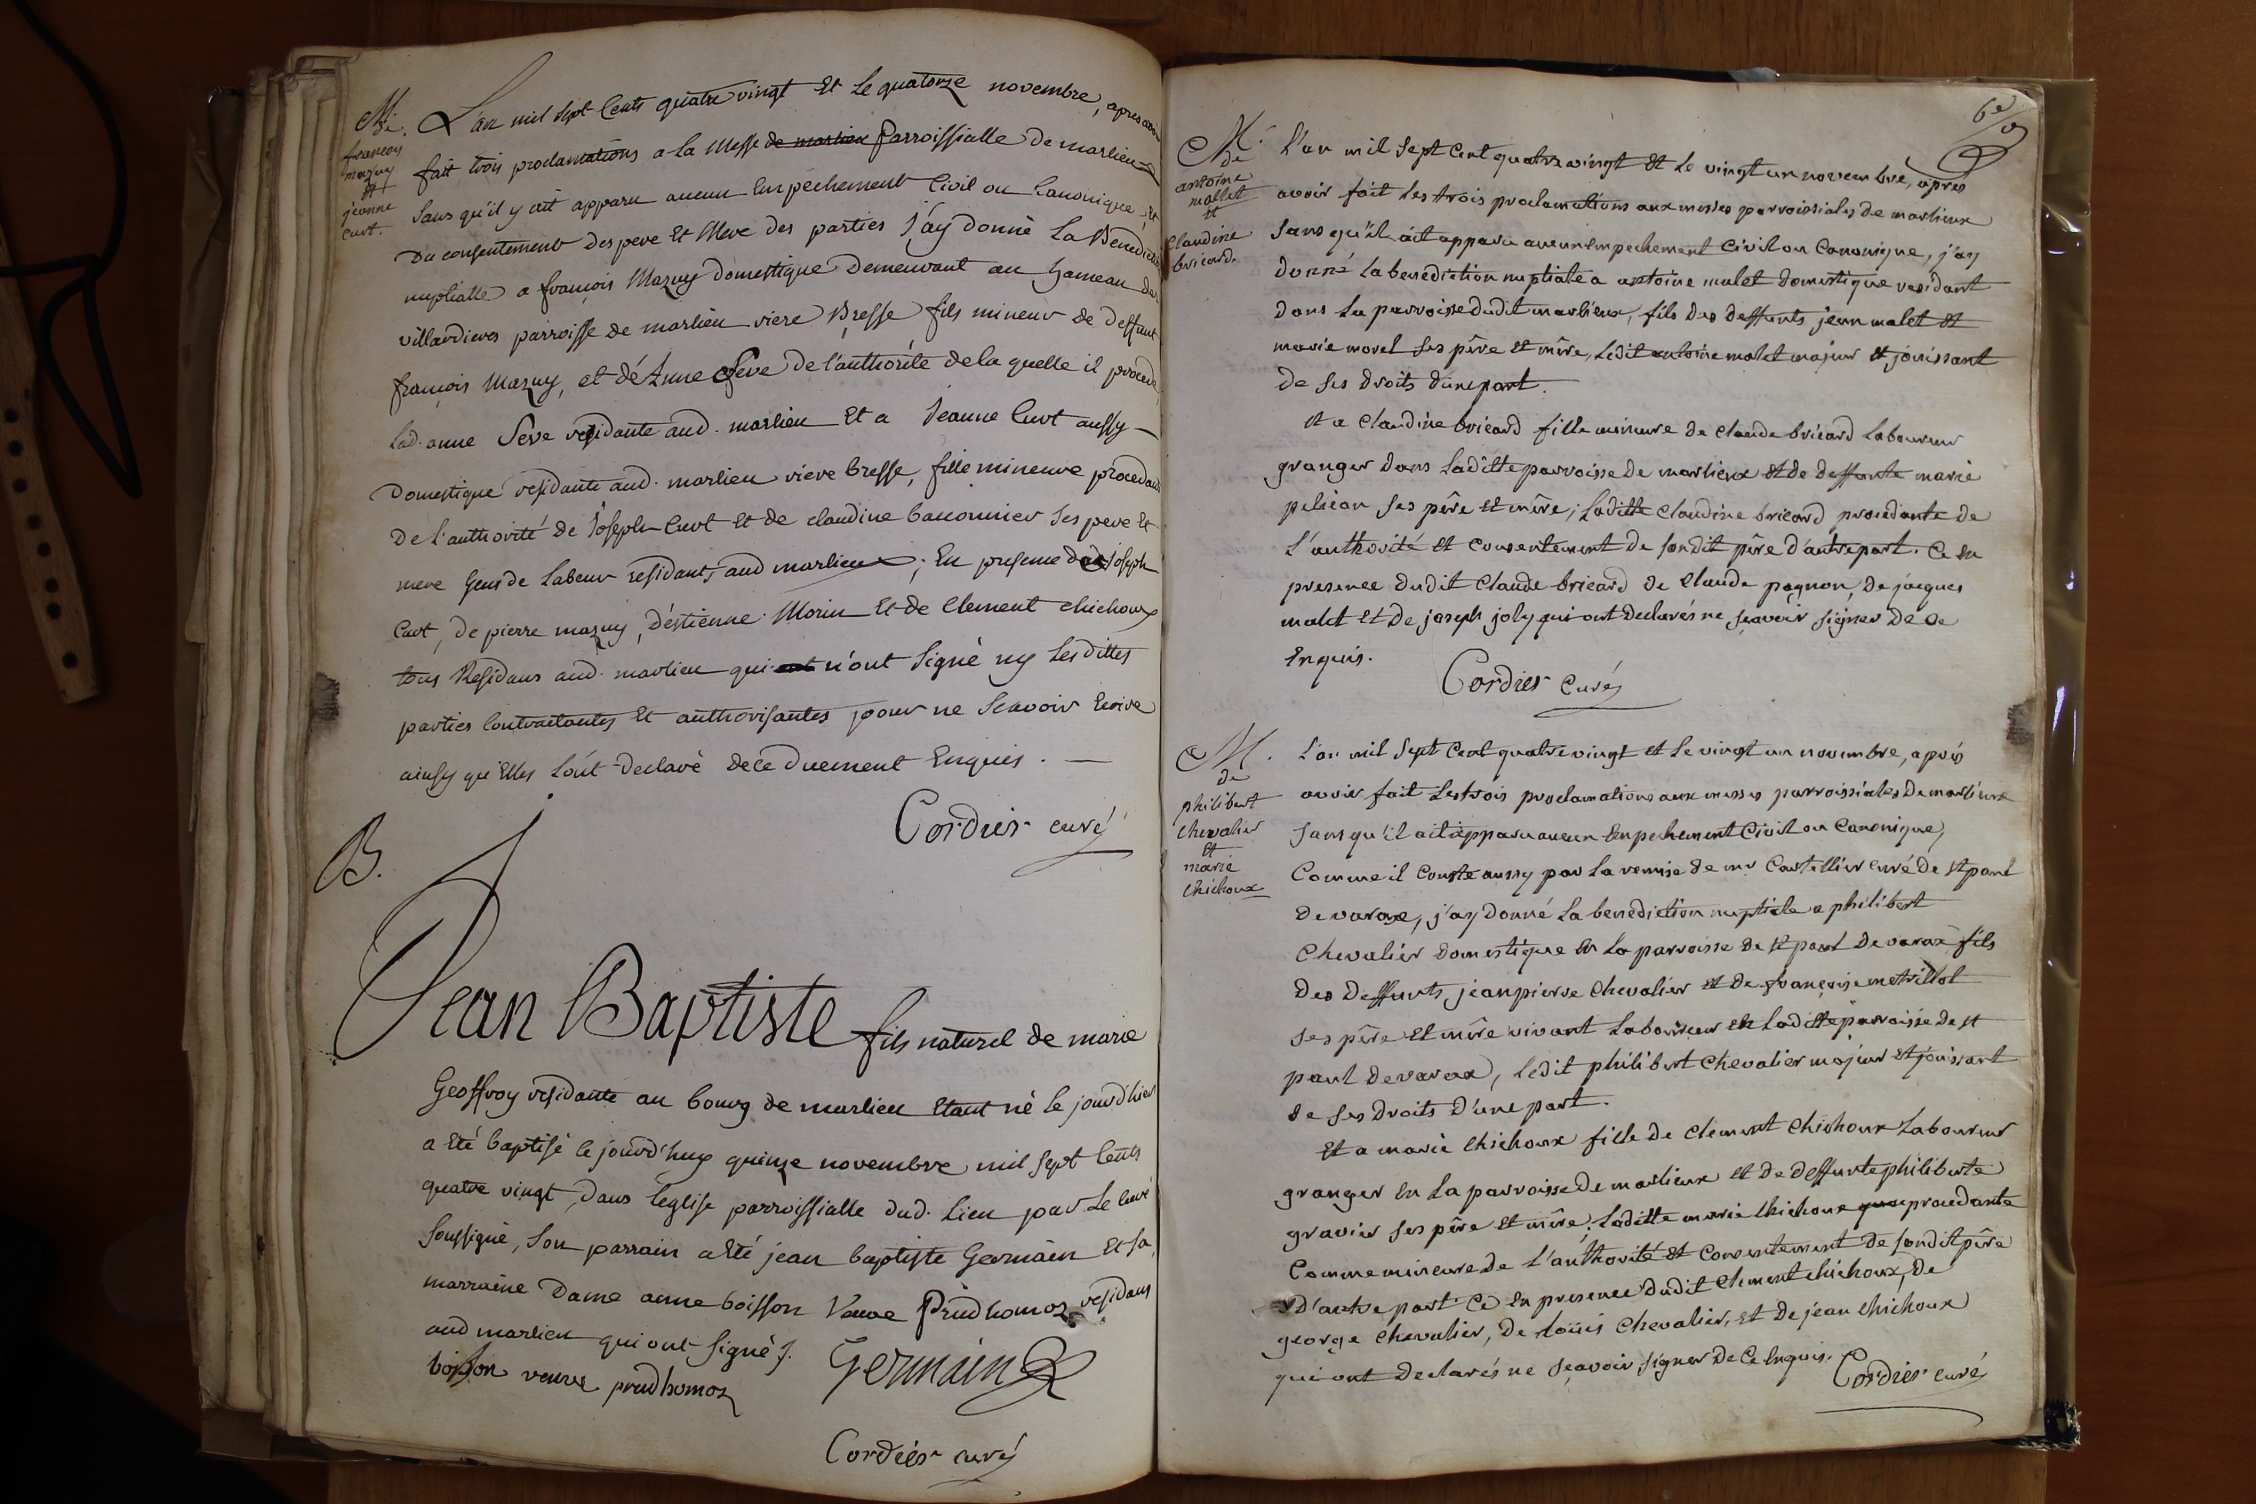 M.
de
francois
mazuy
et
jeanne
curt.
L'an mil sept Cents quatre vingt Et Le quatorze novembre, apres avoir
fait trois proclamations a la Messe de marlieu parroissialle de marlieu
sans qu'il y ait apparu aucun Empechement Civil ou Canonique, et
Du consentement des pere Et Mere des parties j'ay donné La Benediction
nuptialle a françois Mazuy Domestique Demeurant au hameau des
villardieres parroisse de marlieu riere Bresse fils mineur de deffunt
françois Mazuy, et de Anne Seve de l'authorité de la quelle il procede
lad. anne Seve residante aud. marlieu Et a Jeanne Curt aussy
Domestique residante aud. marlieu riere bresse, fille mineure procedant
De l'authorité de Joseph Curt Et de claudine baconnier ses pere Et
mere gens de Labeur residants aud marlieu; En presence de Joseph
Curt, de pierre mazuy, d'estienne Morin Et de Clement chichoux
tous Residans aud. marlieu qui ont n'ont signé ny Les dittes
parties Contractantes Et authorisantes pour ne scavoir Ecrire
ainsy qu'Elles L'ont Declaré de ce Duement Enquis.
Cordier curé
B.
Jean Baptiste fils naturel de marie
Geoffroy residante au bourg de marlieu Etant né le jourd'hier
a Eté baptisé le jourd'huy quinze novembre mil sept Cents
quatre vingt, dans l'eglise parroissialle dud. Lieu par Le curé
soussigné, son parrain a Eté jean baptiste Germain Et sa
marraine Dame anne boisson Veuve Prudhomoz residans
aud marlieu qui ont signés.
boisson veuve prudhomoz
Germain
Cordier curé
M.
de
antoine
mallet
et
Claudine
bricard
L'an mil sept Cent quatre vingt Et Le vingt un novembre, après
avoir fait Les trois proclamations aux messes parroissiales de marlieux
sans qu'il ait apparu aucun empechement Civil ou Canonique, j'ay
donné La benediction nuptiale a antoine malet domestique residant
dans La parroisse dudit marlieux, fils des deffunts jean malet et
marie morel ses père et mère, Ledit antoine malet majeur et jouissant
de ses droits d'une part.
et a Claudine bricard fille mineure de Claude bricard Laboureur
granger dans Laditte parroisse de marlieux et de deffunte marie
pelican ses père et mère, Laditte Claudine bricard procedante de
L'authorité et consentement de sondit père d'autre part. Ce en
presence dudit Claude bricard de Claude pagnon, de jacques
malet et de joseph joly qui ont declarés ne sçavoir signer de ce
Enquis.
Cordier curé
M.
de
philibert
Chevalier
et
marie
Chichoux
L'an mil sept Cent quatre vingt et Le vingt un novembre, après
avoir fait Les trois proclamations aux messes parroissiales de marlieux
sans qu'il ait apparu aucun Empechement Civil ou Canonique,
Comme il conste aussy par La remise de mr Castellier curé de st paul
de varax, j'ay donné La benediction nuptiale a philibert
Chevalier domestique en La parroisse de st paul de varax fils
des deffunts jean pierre Chevalier et de françoise metrillot
ses père et mère vivant Laboureur en Laditte parroisse de st
paul de varax, Ledit philibert Chevalier majeur et jouissant
de ses droits d'une part.
Et a marie Chichoux fille de clement Chichoux Laboureur
granger en La parroisse de marlieux et de deffunte philiberte
gravier ses père et mère, Laditte marie Chichoux procedante
Comme mineure de L'authorité et Consentement de sondit père
d'autre part. Ce en presence dudit clement chichoux, de
george Chevalier, de Loüis Chevalier, et de jean Chichoux
qui ont declarés ne sçavoir signer de Ce Enquis.
Cordier curé